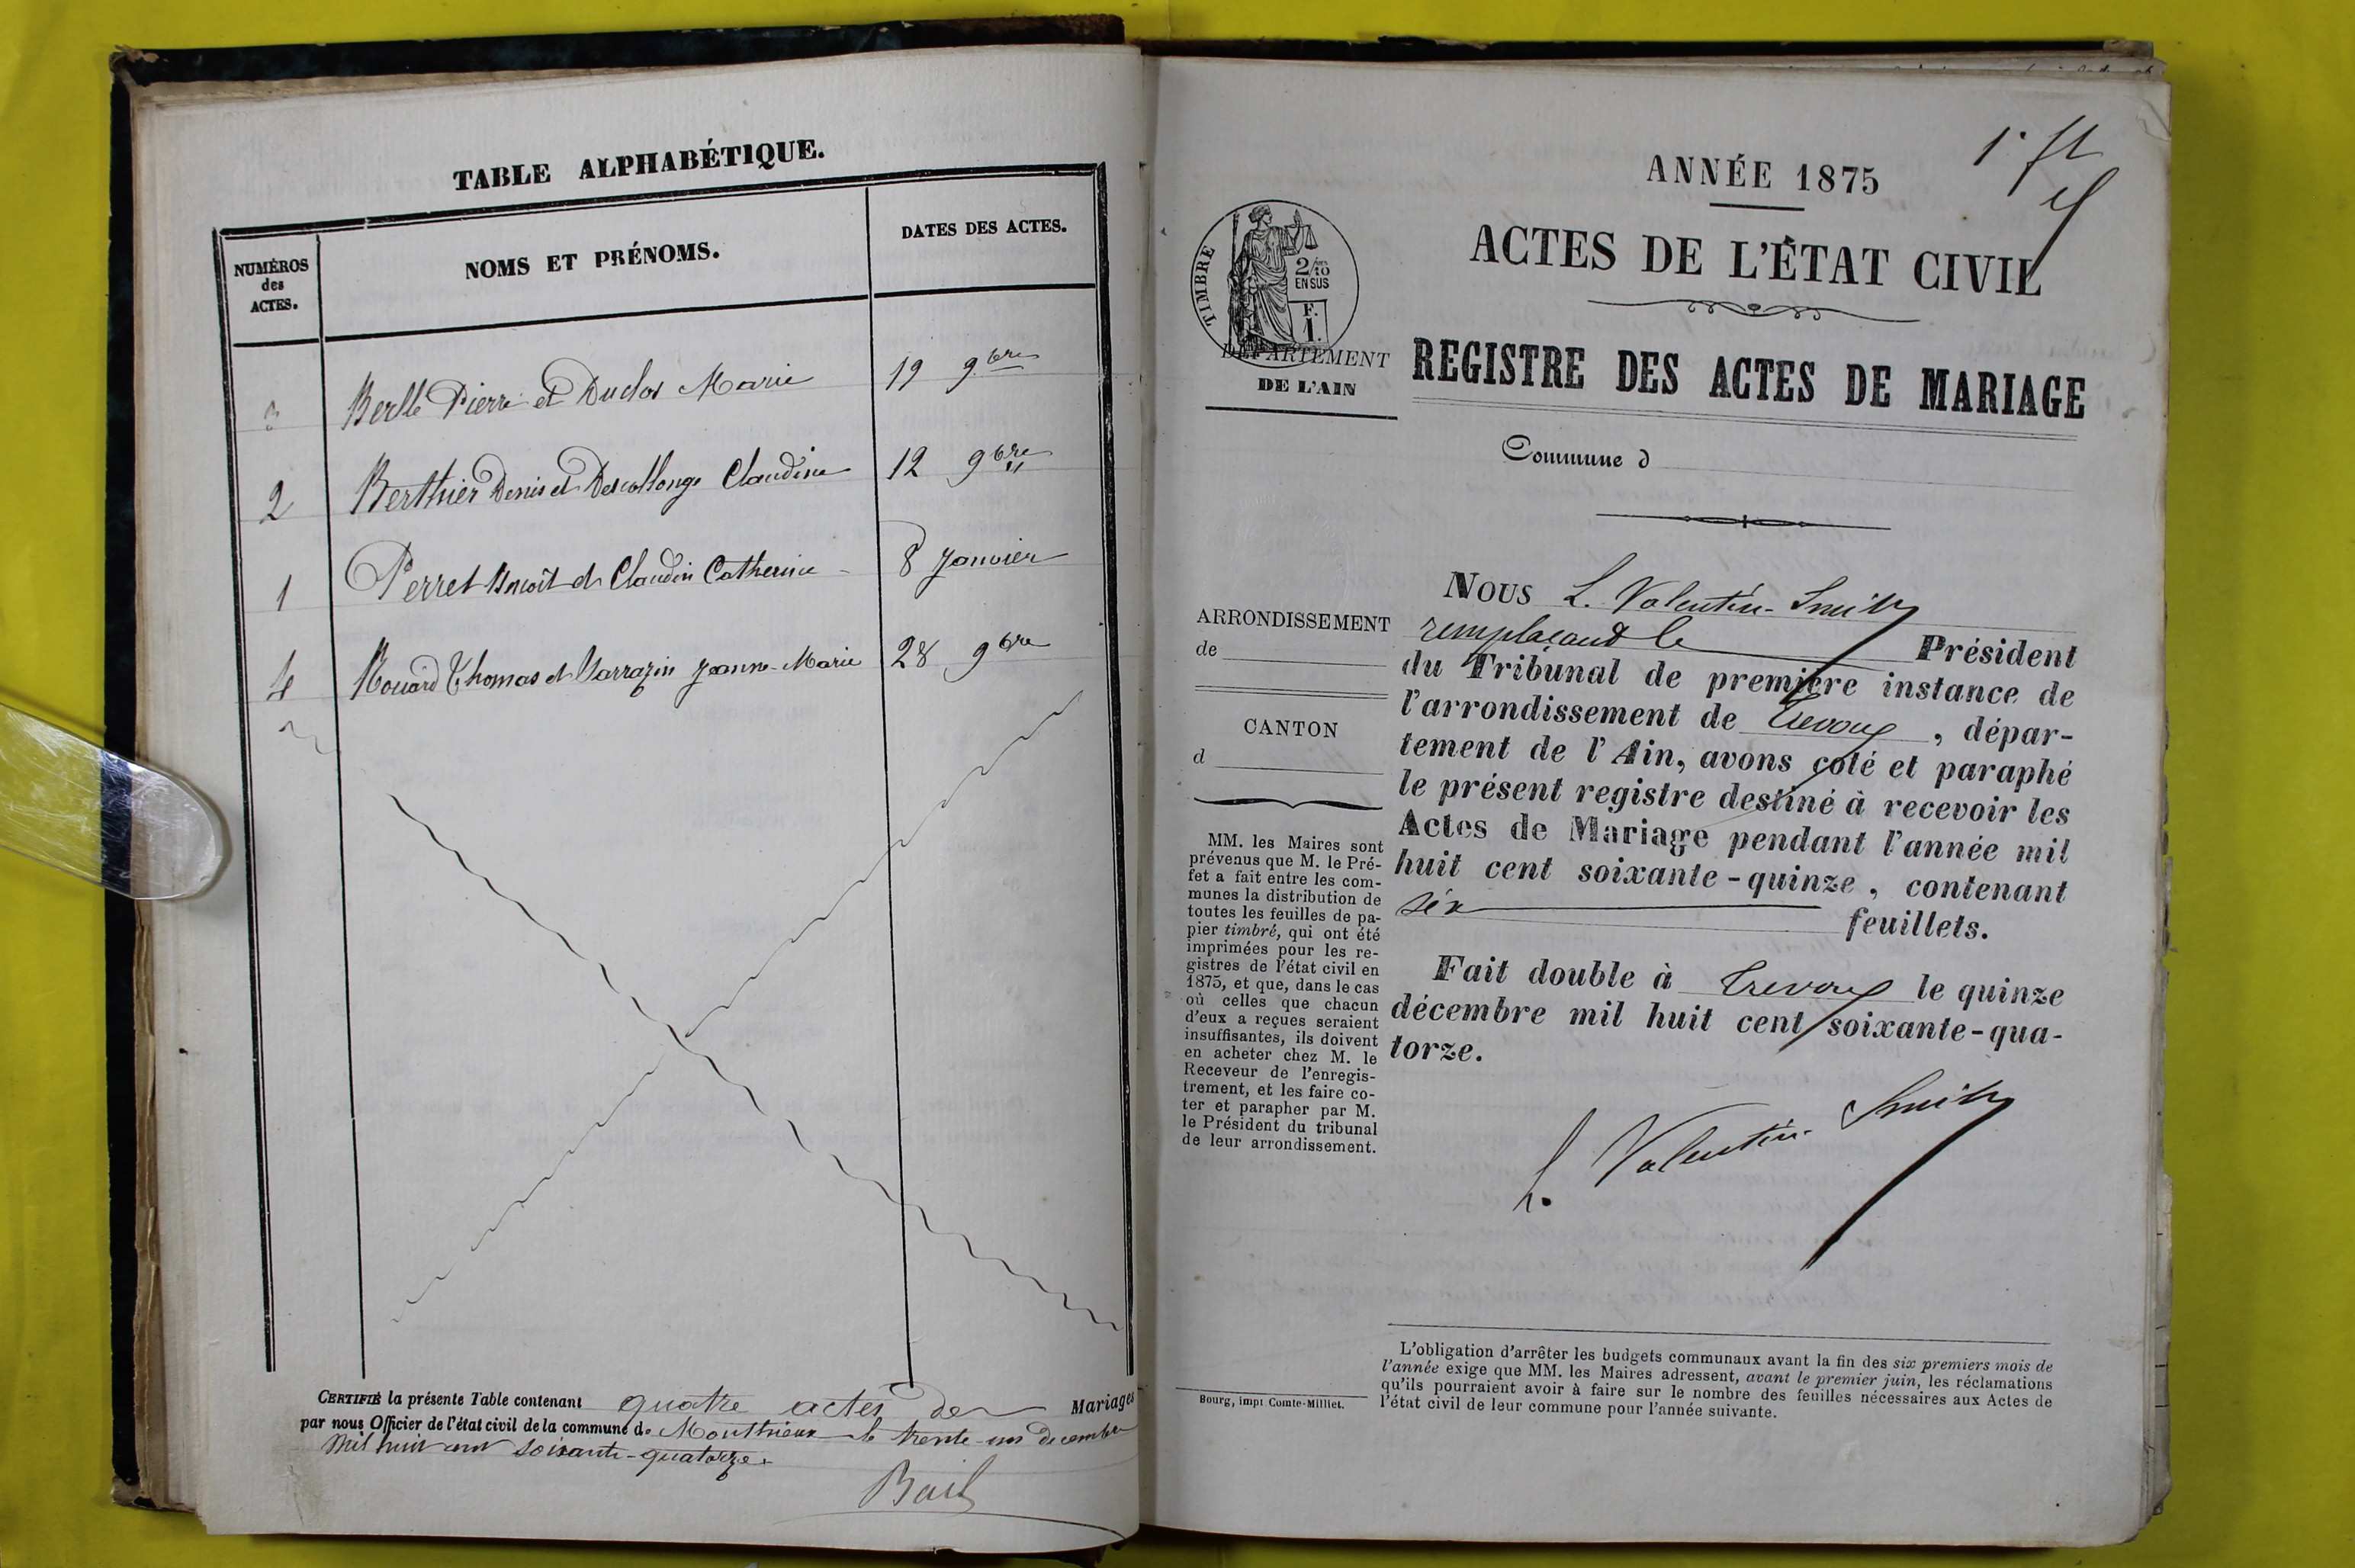 TABLE ALPHABÉTIQUE.
NUMÉROS des ACTES.
NOMS ET PRÉNOMS.
DATES DES ACTES.
3 Berlle Pierre et Duclos Marie 19 9bre
2 Berthier Denis et Descollonge Claudine 12 9bre
1 Perret Benoît et Claudin Catherine 8 Janvier
4 Rouard Thomas et Sarrazin Jeanne-Marie 28 9bre
CERTIFIÉ la présente Table contenant quatre actes de Mariages
par nous Officier de l'état civil de la commune de Monthieux le trente-un décembre
mil huit cent soixante-quatorze.
Bail
1er ft
ANNÉE 1875
ACTES DE L'ÉTAT CIVIL
TIMBRE
2/10
EN SUS
F.
1.
DÉPARTEMENT
DE L'AIN
REGISTRE DES ACTES DE MARIAGE
Commune d
ARRONDISSEMENT
de
CANTON
d
MM. les Maires sont
prévenus que M. le Pré-
fet a fait entre les com-
munes la distribution de
toutes les feuilles de pa-
pier timbré, qui ont été
imprimées pour les re-
gistres de l'état civil en
1875, et que, dans le cas
où celles que chacun
d'eux a reçues seraient
insuffisantes, ils doivent
en acheter chez M. le
Receveur de l'enregis-
trement, et les faire co-
ter et parapher par M.
le Président du tribunal
de leur arrondissement.
NOUS L. Valentin-Smith
remplaçant le Président
du Tribunal de première instance de
l'arrondissement de Trevoux, dépar-
tement de l'Ain, avons coté et paraphé
le présent registre destiné à recevoir les
Actes de Mariage pendant l'année mil
huit cent soixante-quinze, contenant
six feuillets.
Fait double à Trevoux le quinze
décembre mil huit cent soixante-qua-
torze.
L. Valentin-Smith
Bourg, impr Comte-Milliet.
L'obligation d'arrêter les budgets communaux avant la fin des six premiers mois de
l'année exige que MM. les Maires adressent, avant le premier juin, les réclamations
qu'ils pourraient avoir à faire sur le nombre des feuilles nécessaires aux Actes de
l'état civil de leur commune pour l'année suivante.